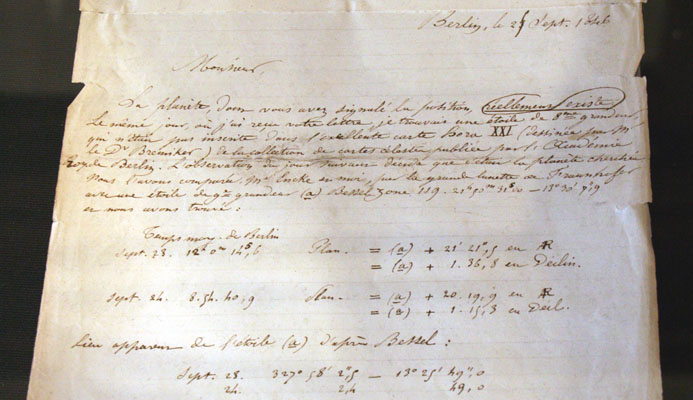 Berlin, le 25 Sept. 1846
Monsieur,
La planète, dont vous avez signalé la position, réellement existe.
Le même jour, où j'ai reçu votre lettre, je trouvais une étoile de 8me grandeur,
qui n'était pas inscrite dans l'excellente carte Hora XXI (dessinée par M.
le Dr Bremiker) de la collection de cartes célestes publiée par l'Académie
royale de Berlin. L'observation du jour suivant décida que c'était la planète cherchée.
Nous l'avons comparée, Mr Encke et moi, par la grande lunette de Fraunhofer
avec une étoile de 9me grandeur (a) Bessel Zone 119. 21h 50m 31s — 13° 30'
et nous avons trouvé:
Temps moy. de Berlin
Sept. 23. 12h 0m 14s,6 Plan. = (a) + 21' 21",5 en AR
= (a) + 1. 36,8 en Déclin.
Sept. 24. 8. 54. 40,9 Plan. = (a) + 20. 19,9 en AR
= (a) + 1. 15,3 en Decl.
lieu apparent de l'étoile (a) d'après Bessel:
Sept. 23. 327° 58' 2",5 — 13° 25' 49",0
24. 2,4 49,0